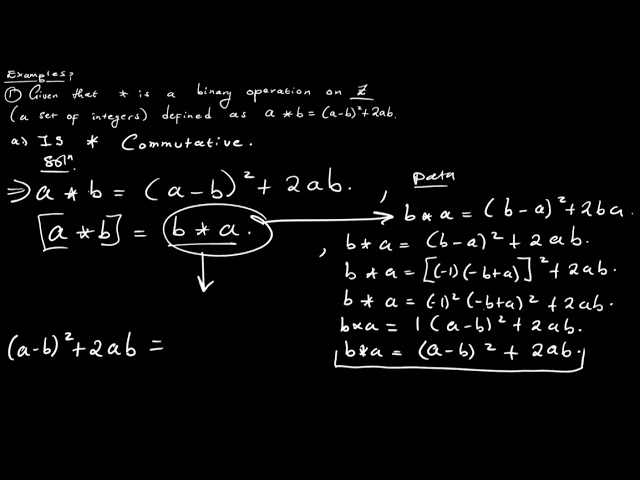 Examples:
① Given that * is a binary operation on Z
(a set of integers) defined as a * b = (a-b)² + 2ab.
a) Is * Commutative.
Solⁿ
⇒ a * b = (a-b)² + 2ab. ,
[a * b] = b * a.
(a-b)² + 2ab =
Data
b * a = (b-a)² + 2ba.
, b * a = (b-a)² + 2ab.
b * a = [(-1)(-b+a)]² + 2ab.
b * a = (-1)² (-b+a)² + 2ab.
b*a = 1(a-b)² + 2ab.
b*a = (a-b)² + 2ab.